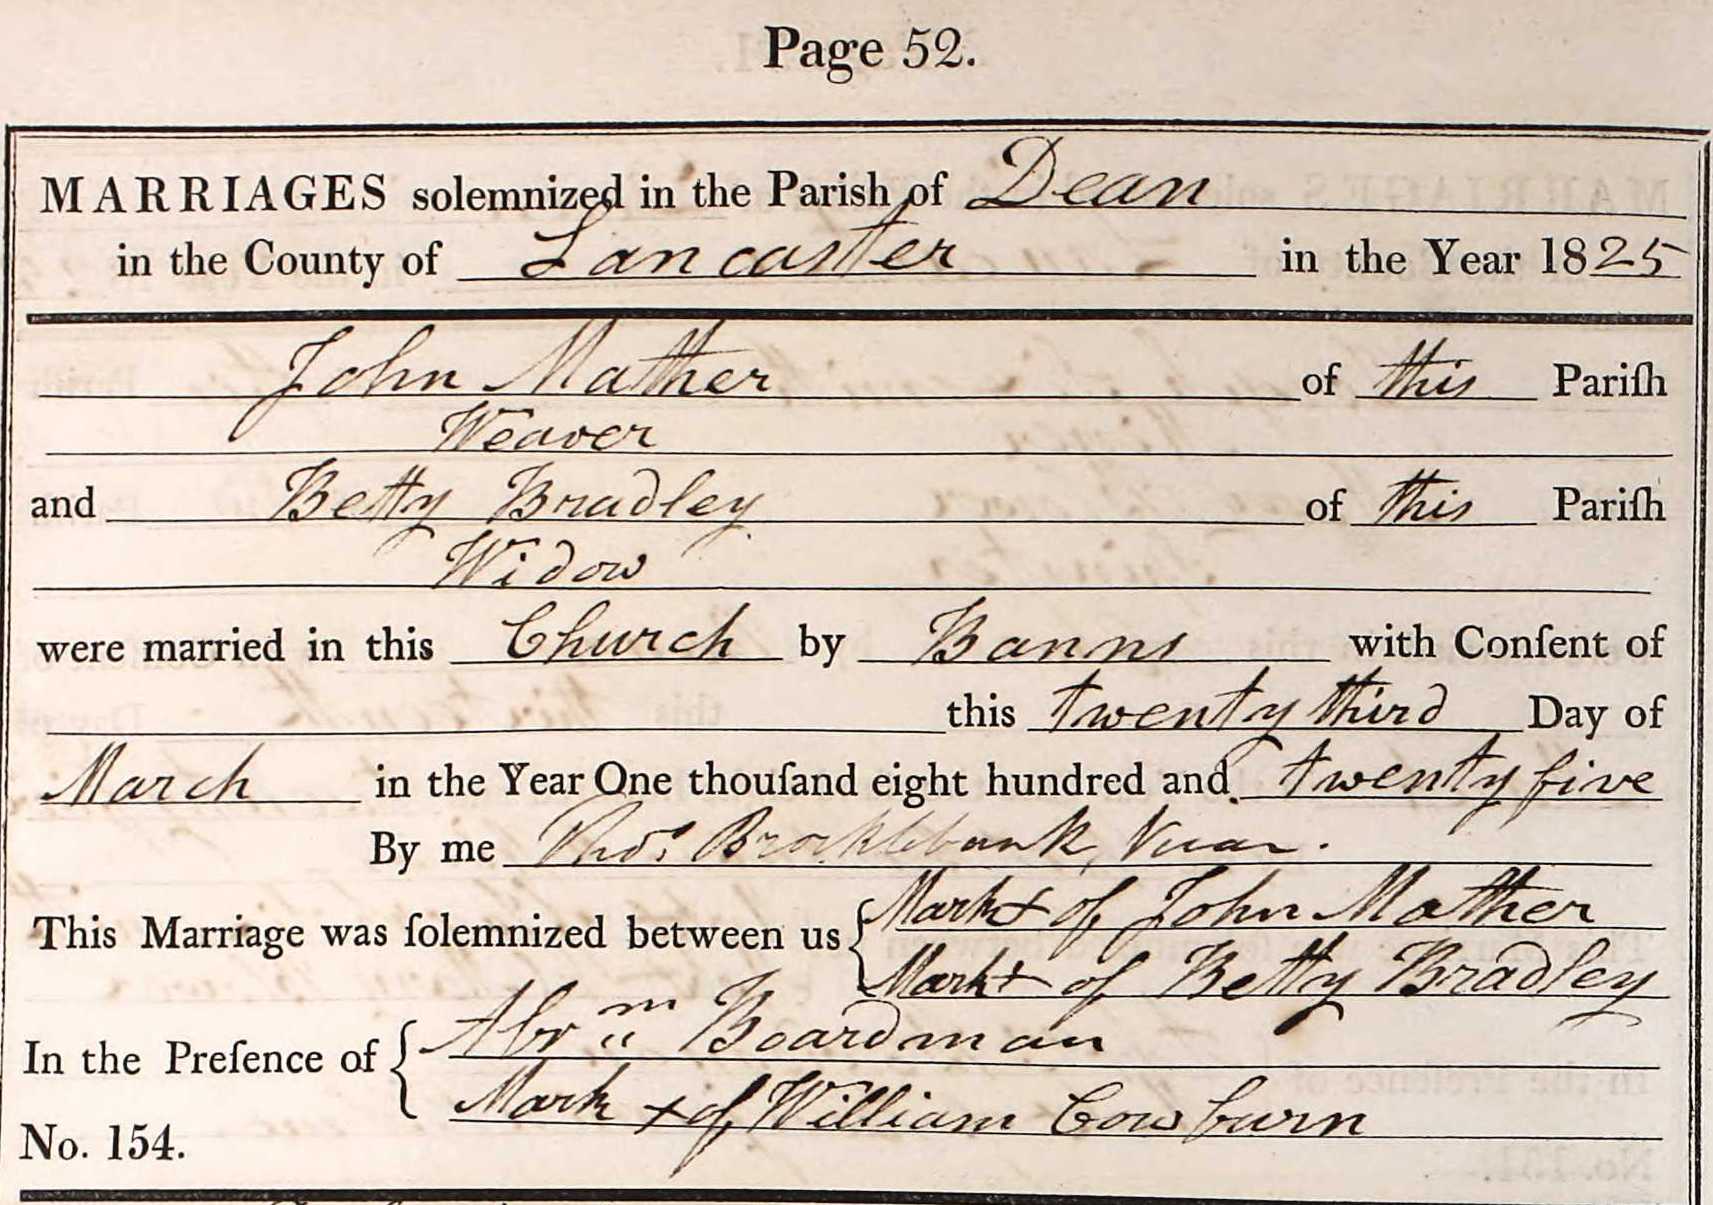 Page 52.
MARRIAGES solemnized in the Parish of Dean
in the County of Lancaster in the Year 1825
John Mather of this Pariſh
Weaver
and Betty Bradley of this Pariſh
Widow
were married in this Church by Banns with Conſent of
this twenty third Day of
March in the Year One thouſand eight hundred and twenty five
By me Thos. Brocklebank, Vicar.
This Marriage was ſolemnized between us { Mark + of John Mather
Mark + of Betty Bradley
In the Preſence of { Abrm Boardman
Mark + of William Cowburn
No. 154.